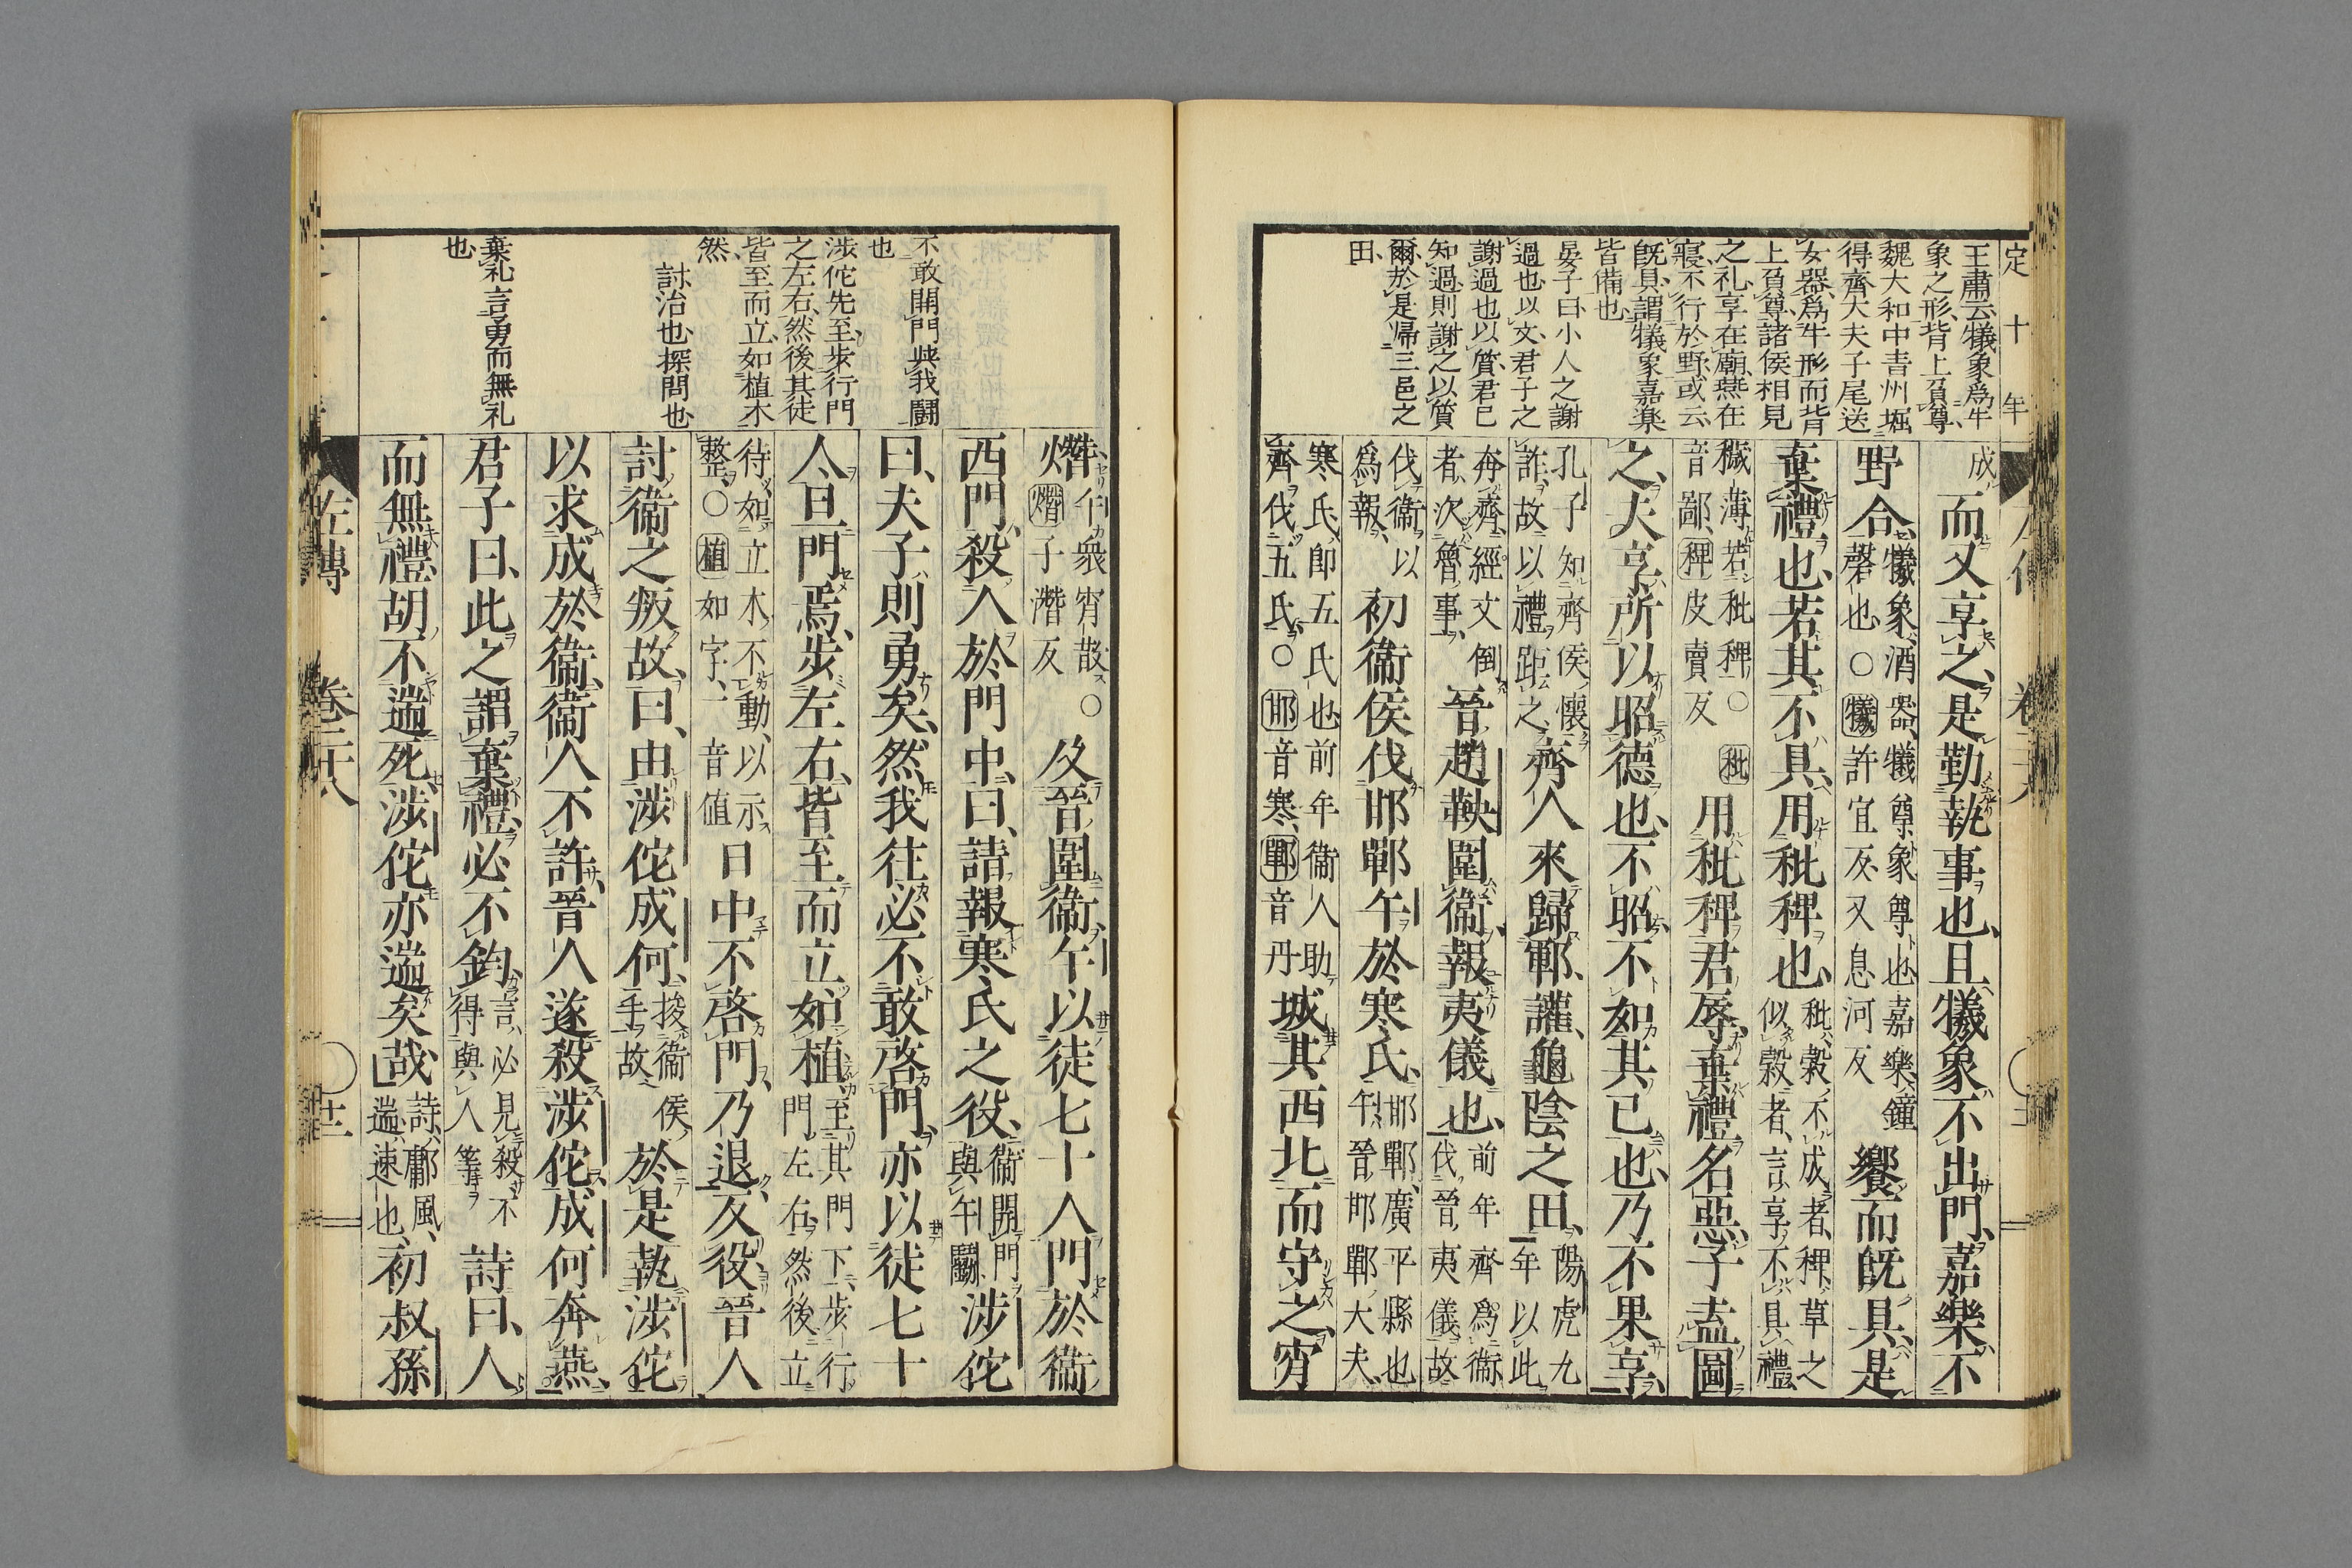 定十年
王肅云犧象爲牛
象之形、背上負尊、
魏大和中青州堀
得齊大夫子尾送
女器爲牛形而背
上負尊諸侯相見
之礼享在廟燕在
寢不行於野或云
旣具謂犧象嘉楽
皆備也
晏子曰小人之謝
過也以文君子之
謝過也以質君已
知過則謝之以質
爾於是帰三邑之
田、
成
而又享之、是勤執事也、且犧象不出門、嘉樂不
野合、
犧象、酒器、犧尊象尊也、嘉樂、鐘
磬也、○犧許宜反、又息河反
饗而旣具、是
棄禮也、若其不具、用秕稗也、
秕、穀不成者、稗、草之
似穀者、言享不具禮、
穢薄若秕稗○秕
音鄙、稗皮賣反
用秕稗君辱、棄禮名惡、子盍圖
之、夫享所以昭德也、不昭不如其已也、乃不果享、
孔子知齊侯懷
詐、故以禮距之、
齊人來歸鄆、讙、龜陰之田、
陽虎九
年以此
奔齊、經文倒
者、次魯事、
晉趙鞅圍衞、報夷儀也、
前年齊爲衞
伐晉夷儀故
伐衞以
爲報、
初衞侯伐邯鄲午於寒氏、
邯鄲、廣平縣也
午、晉邯鄲大夫、
寒氏、卽五氏也、前年衞人助
齊伐五氏、○邯音寒、鄲音丹
城其西北而守之、宵
不敢開門与我鬪
也
涉佗先至步行門
之左右、然後其徒
皆至而立、如植木
然、
討治也、探問也
棄礼言勇而無礼
也、
熸、
午衆宵散○
熸子潛反
及晉圍衞、午以徒七十人門於衞
西門、殺人於門中、曰、請報寒氏之役、
衞開門
與午鬭、
涉佗
曰、夫子則勇矣、然我往必不敢啓門、亦以徒七十
人旦門焉、步左右、皆至而立、如植、
至其門下、步行
門左右、然後立
待、如立木不動、以示
整、○植如字、一音値
日中不啓門、乃退、反役、晉人
討衞之叛故、曰、由涉佗成何、
捘衞侯
手故
於是執涉佗
以求成於衞、衞人不許、晉人遂殺涉佗、成何奔燕、
君子曰、此之謂棄禮、必不鈞、
言必見殺、不
得與人等
詩曰、人
而無禮、胡不遄死、涉佗亦遄矣哉、
詩、鄘風、
遄、速也、
初叔孫
左傳 卷二十八